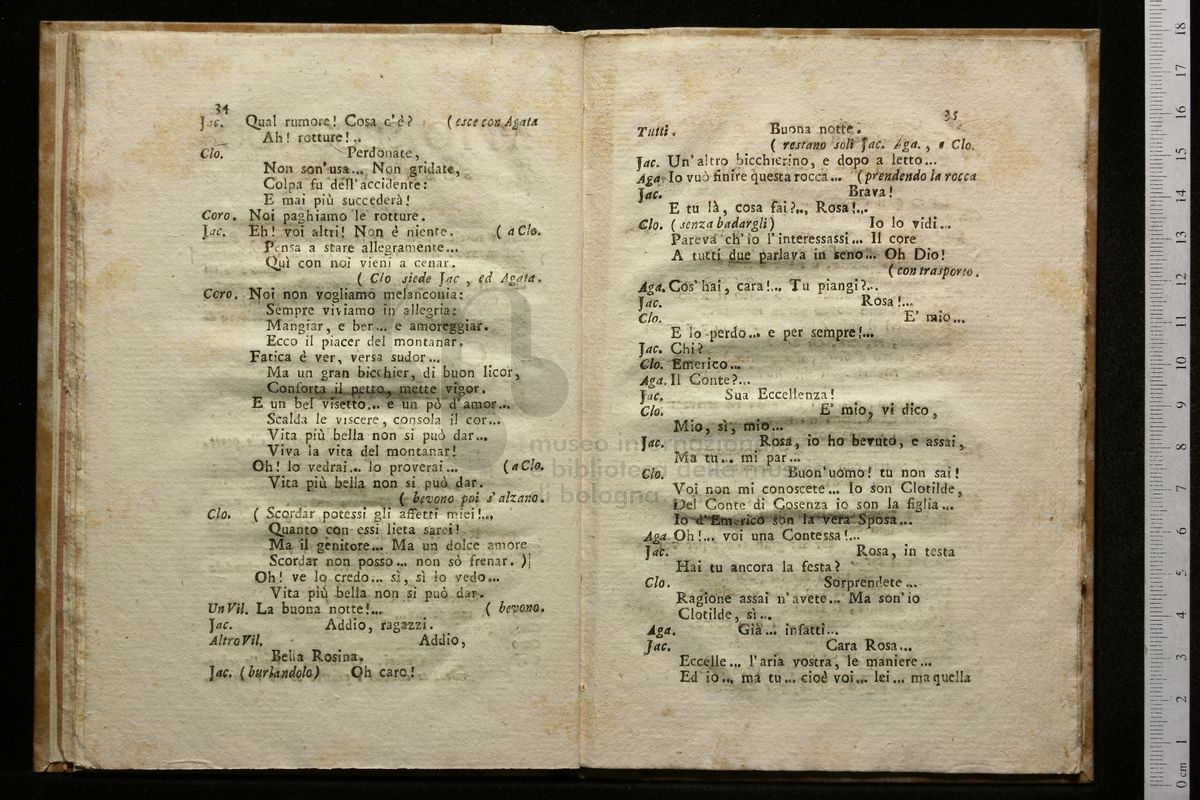 34
Jac. Qual rumore! Cosa c'è? (esce con Agata
Ah! rotture!..
Clo. Perdonate,
Non son'usa... Non gridate,
Colpa fu dell'accidente:
E mai più succederà!
Coro. Noi paghiamo le rotture.
Jac. Eh! voi altri! Non è niente. (a Clo.
Pensa a stare allegramente...
Quì con noi vieni a cenar.
( Clo siede Jac, ed Agata.
Coro. Noi non vogliamo melanconia:
Sempre viviamo in allegria:
Mangiar, e ber... e amoreggiar.
Ecco il piacer del montanar.
Fatica è ver, versa sudor...
Ma un gran bicchier, di buon licor,
Conforta il petto, mette vigor.
E un bel visetto... e un pò d'amor...
Scalda le viscere, consola il cor...
Vita più bella non si può dar...
Viva la vita del montanar!
Oh! lo vedrai... lo proverai... (a Clo.
Vita più bella non si può dar.
( bevono poi s'alzano.
Clo. ( Scordar potessi gli affetti miei!...
Quanto con essi lieta sarei!
Ma il genitore... Ma un dolce amore
Scordar non posso... non sò frenar. )
Oh! ve lo credo... sì, sì lo vedo...
Vita più bella non si può dar.
Un Vil. La buona notte!... ( bevono.
Jac. Addio, ragazzi.
Altro Vil. Addio,
Bella Rosina.
Jac. (burlandolo) Oh caro!
35
Tutti. Buona notte.
( restano soli Jac. Aga., e Clo.
Jac. Un'altro bicchierino, e dopo a letto...
Aga. Io vuò finire questa rocca... (prendendo la rocca
Jac. Brava!
E tu là, cosa fai?.., Rosa!...
Clo. (senza badargli) Io lo vidi...
Pareva ch'io l'interessassi... Il core
A tutti due parlava in seno... Oh Dio!
( con trasporto.
Aga. Cos'hai, cara!... Tu piangi?...
Jac. Rosa!...
Clo. E' mio...
E lo perdo... e per sempre!...
Jac. Chi?
Clo. Emerico...
Aga. Il Conte?...
Jac. Sua Eccellenza!
Clo. E' mio, vi dico,
Mio, sì, mio...
Jac. Rosa, io ho bevuto, e assai,
Ma tu... mi par...
Clo. Buon'uomo! tu non sai!
Voi non mi conoscete... Io son Clotilde,
Del Conte di Cosenza io son la figlia...
Io d'Emerico son la vera Sposa...
Aga. Oh!... voi una Contessa!...
Jac. Rosa, in testa
Hai tu ancora la festa?
Clo. Sorprendete...
Ragione assai n'avete... Ma son'io
Clotilde, sì...
Aga. Già... infatti...
Jac. Cara Rosa...
Eccelle... l'aria vostra, le maniere...
Ed io... ma tu... cioè voi... lei... ma quella
museo internazionale
biblioteca della musica
di bologna
0 cm 1 2 3 4 5 6 7 8 9 10 11 12 13 14 15 16 17 18